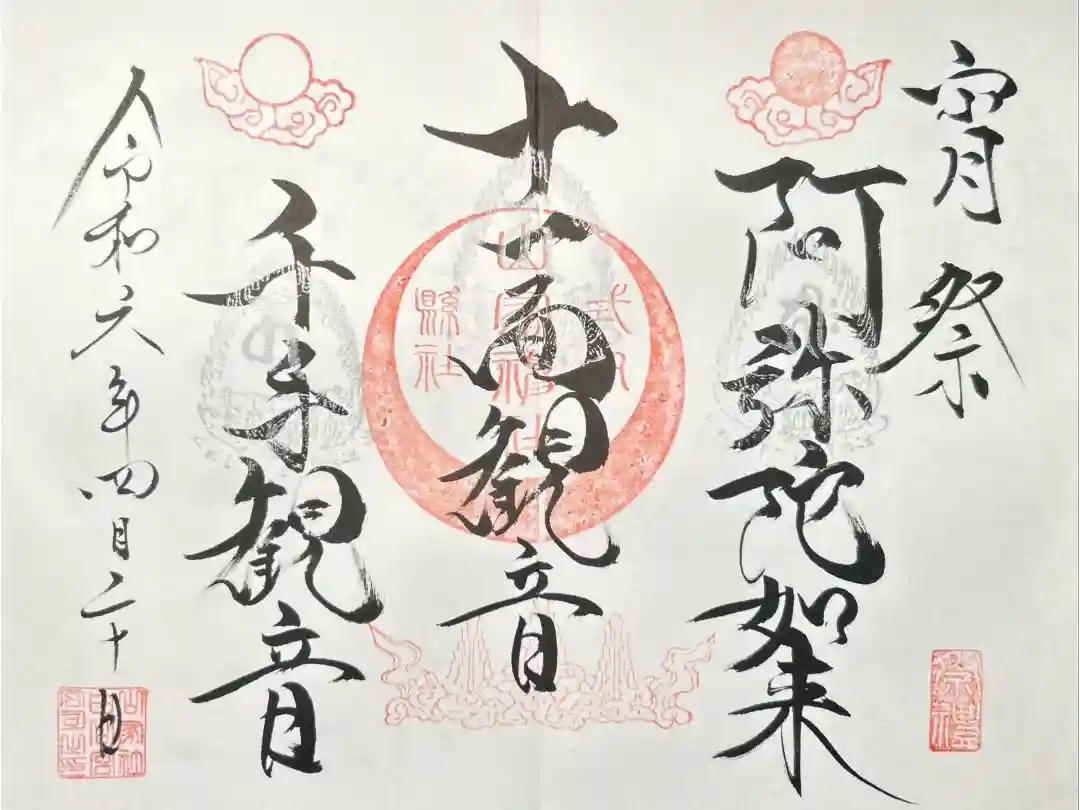 宵祭
阿弥陀如来
十一面観音
千手観音
令和六年四月二十日
式内
山家神社
縣社
祭禮